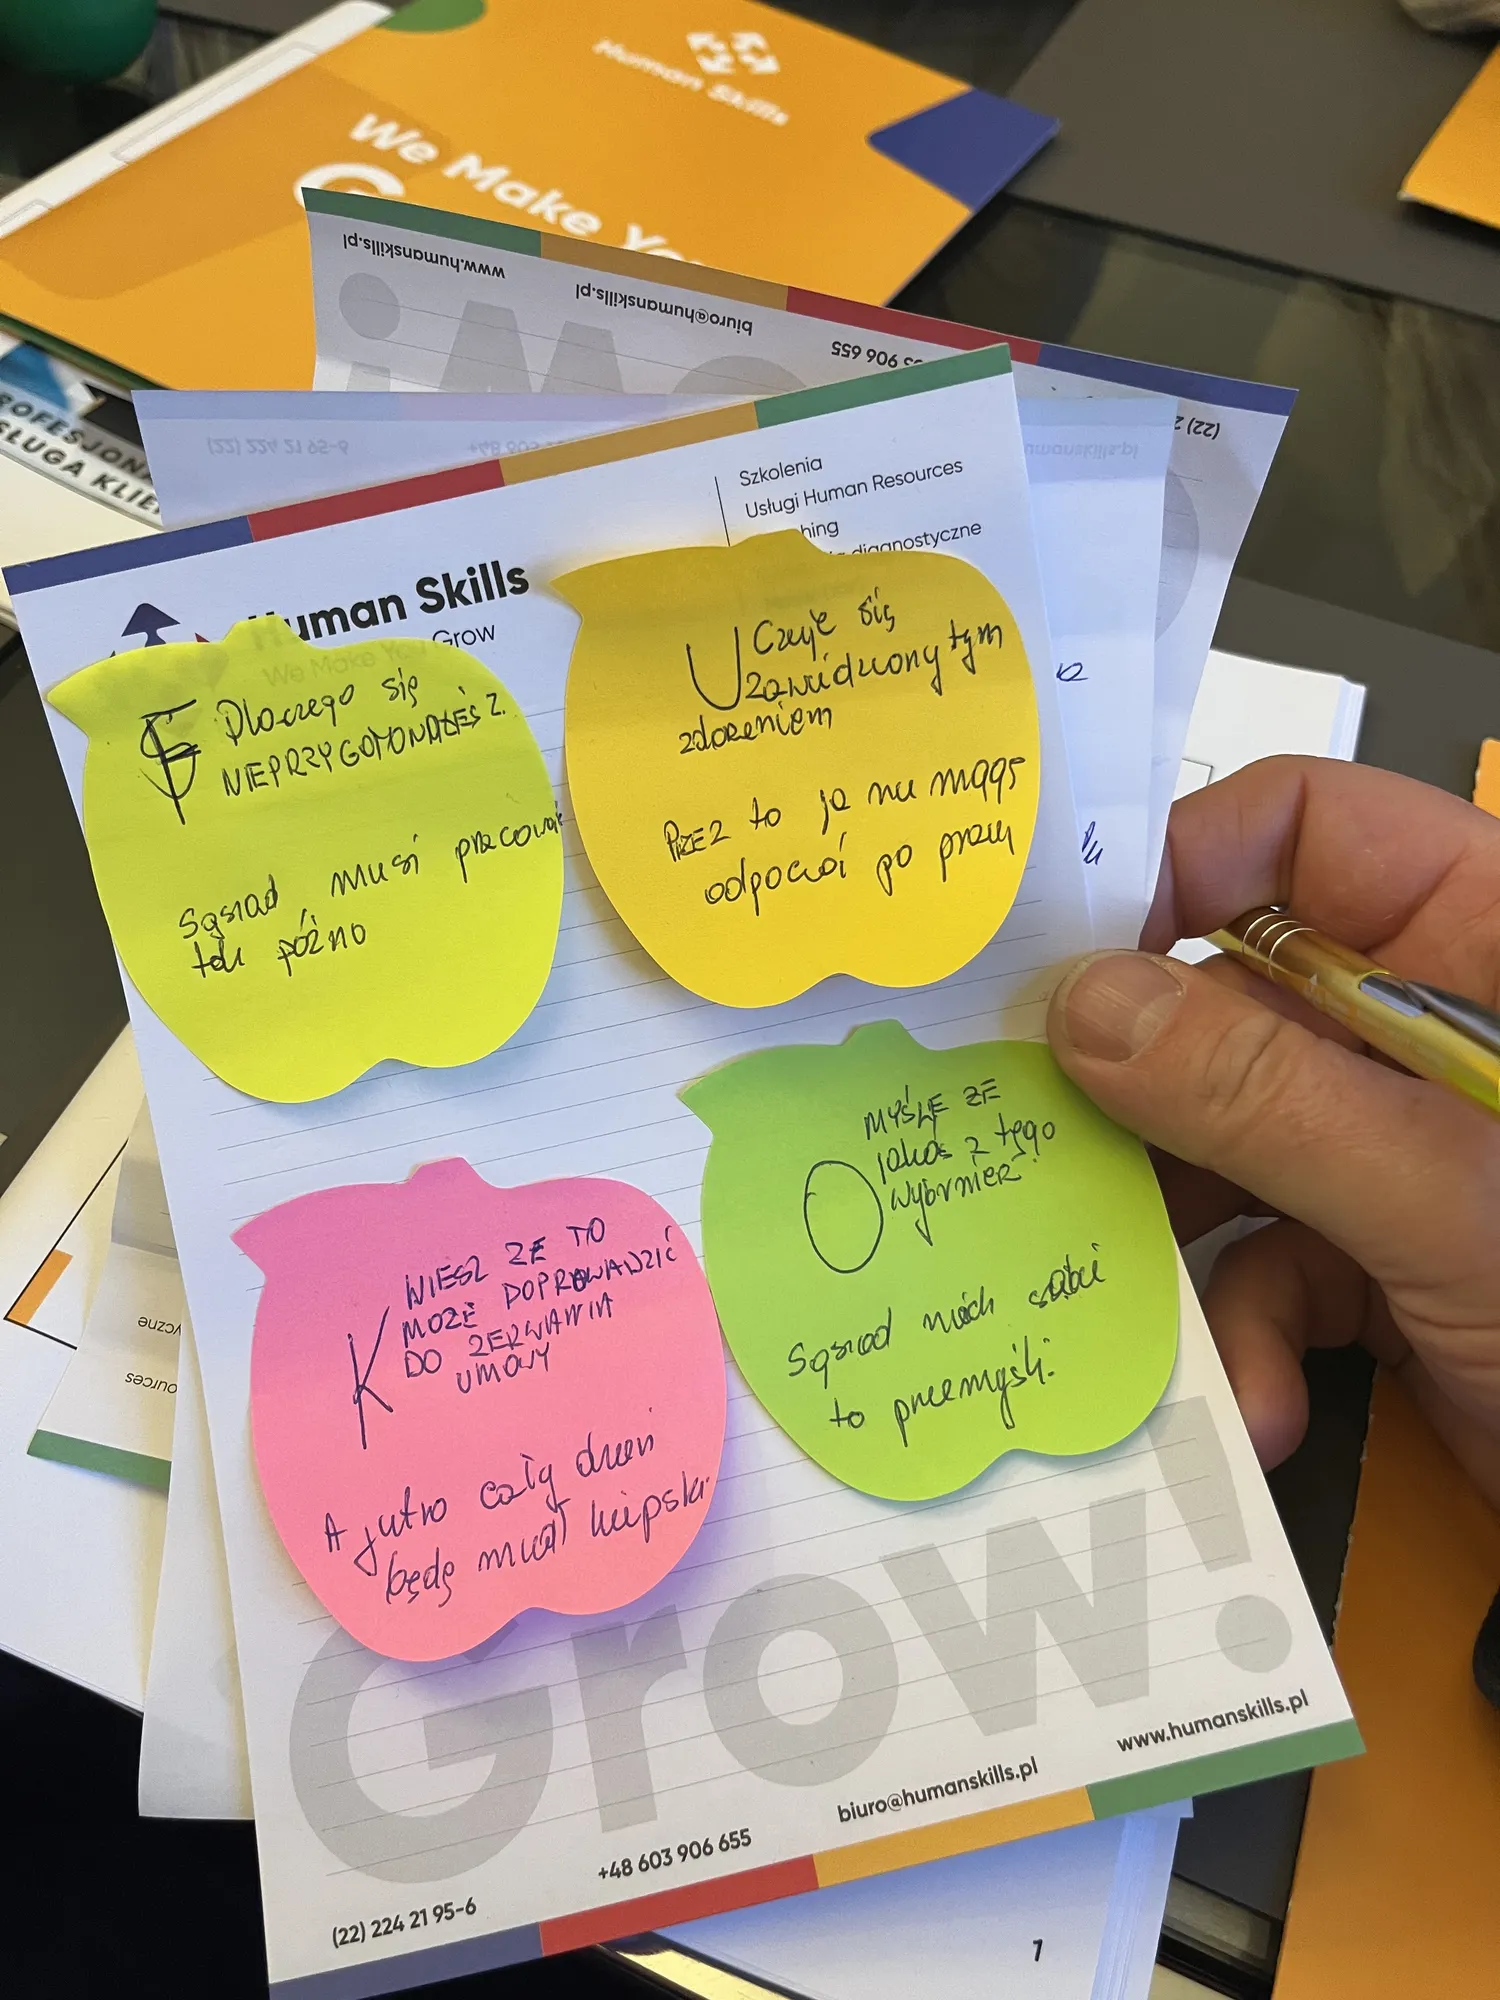 Human Skills
We Make You
G
www.humanskills.pl
biuro@humanskills.pl
906 655
(22) 2
(22) 224 21 95-6
+48 603
humanskills.pl
SŁUGA KLIE
Szkolenia
Usługi Human Resources
hing
diagnostyczne
Human Skills
We Make You Grow
F Dlaczego się
NIEPRZYGOTOWAŁEŚ Z.
Sąsiad musi pracować
tak późno
U Czuje się
zawiedziony tym
zdarzeniem
PRZEZ to ja nie mogę
odpocząć po pracy
K WIESZ ŻE TO
MOŻE DOPROWADZIĆ
DO ZERWANIA
UMOWY
A jutro cały dzień
będę miał kiepski
O MYŚLĘ ŻE
jakoś z tego
wybrnier
Sąsiad niech sobie
to przemyśli.
Grow!
(22) 224 21 95-6
+48 603 906 655
biuro@humanskills.pl
www.humanskills.pl